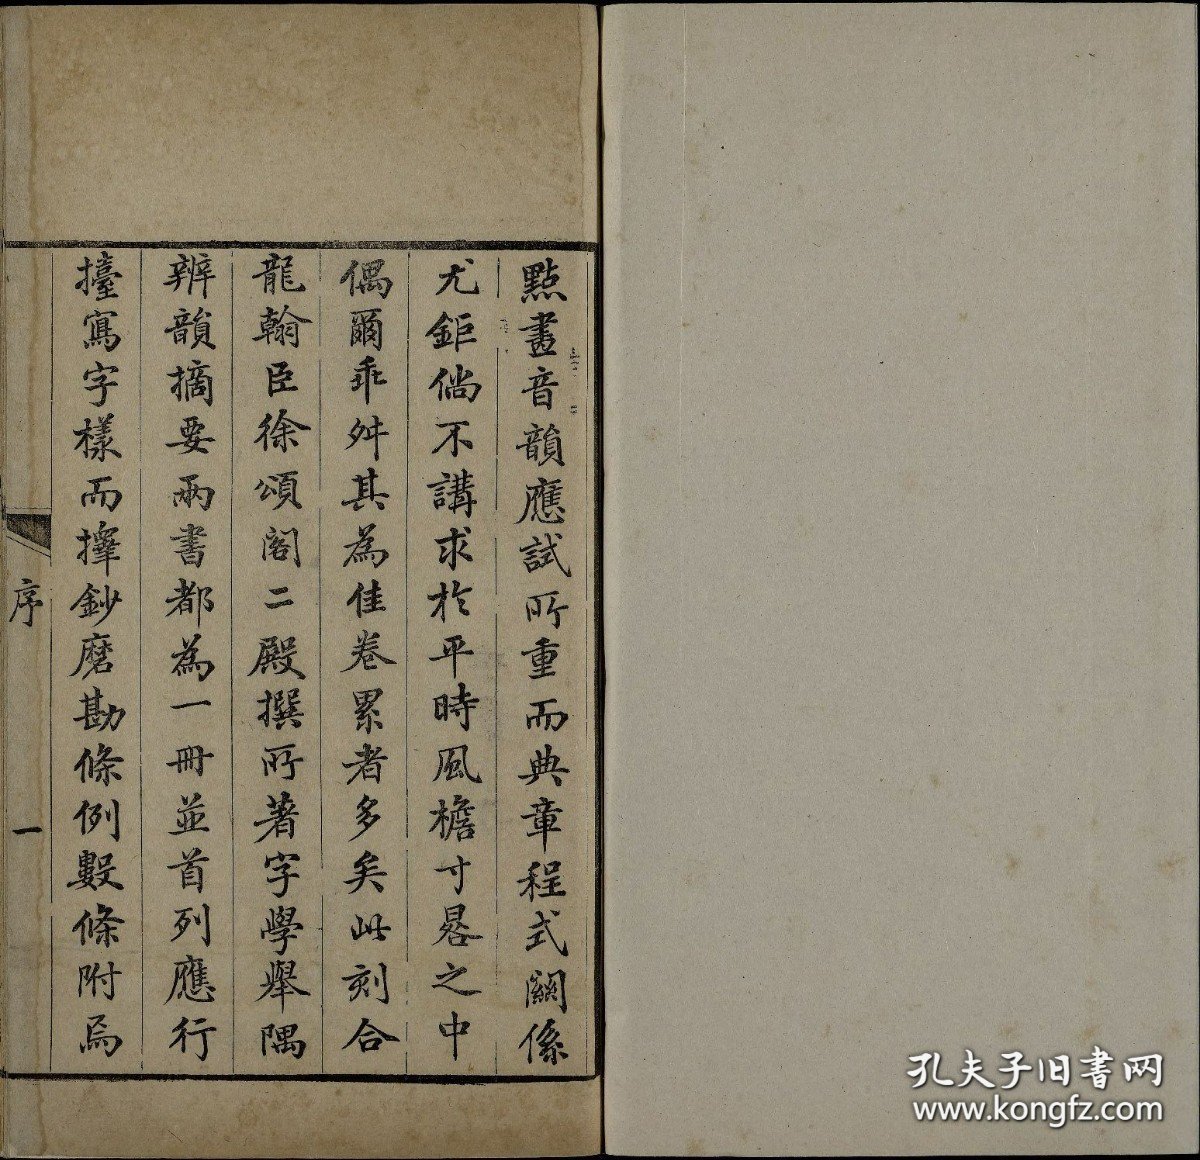 點畫音韻應試所重而典章程式關係
尤鉅倘不講求於平時風檐寸晷之中
偶爾乖舛其為佳卷累者多矣此刻合
龍翰臣徐頌閣二殿撰所著字學舉隅
辨韻摘要兩書都為一冊並首列應行
擡寫字樣而擇鈔磨勘條例數條附焉
序
一
孔夫子旧书网
www.kongfz.com